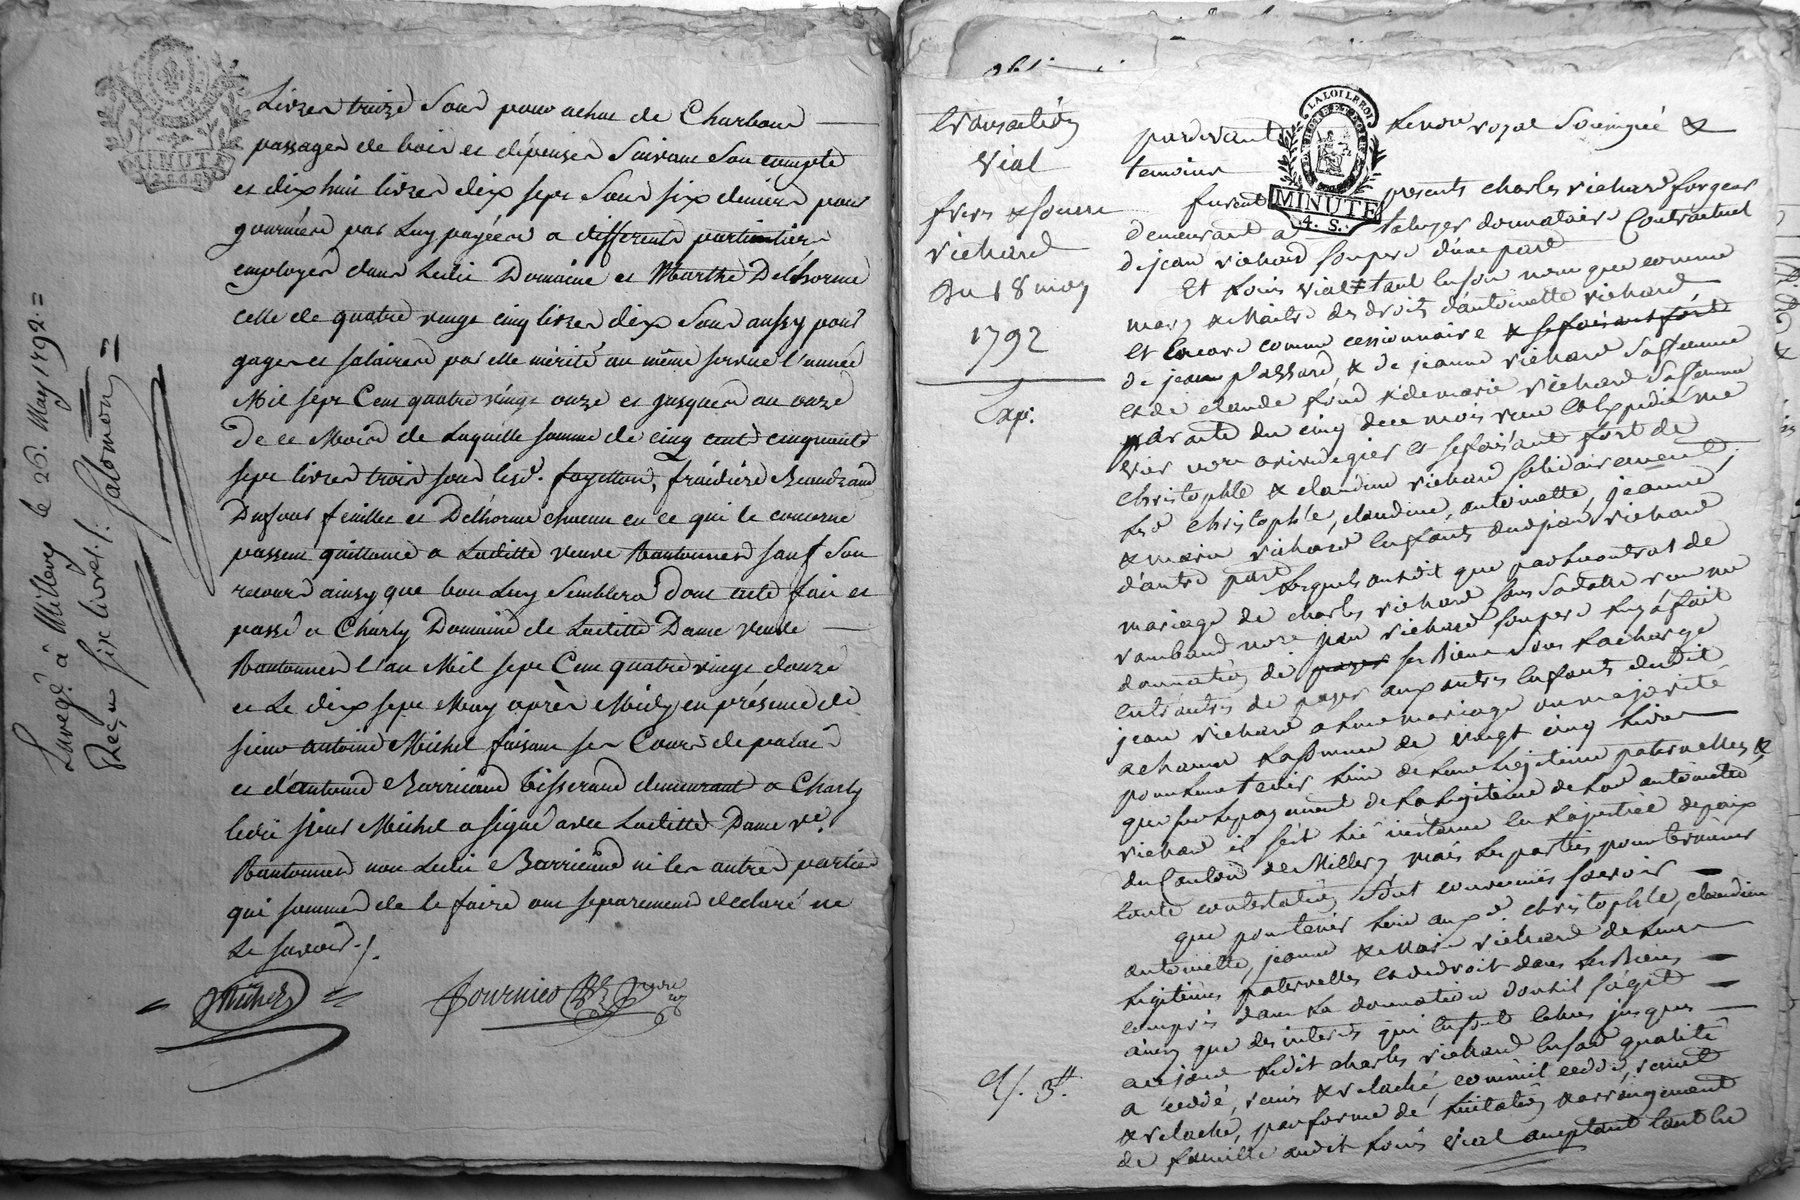 MINUTE
Livres treize Sous pour achat de Charbons
passages de bois et dépenses Suivant Son compte
et dix huit livres dix sept Sous six deniers pour
journées par Luy payées a différents particuliers
employés dans Ledit Domaine et Marthe Delhorme
celle de quatre vingt cinq livres dix Sous aussy pour
gages et salaires par elle mérité au même service l'année
Mil sept Cent quatre vingt onze et jusques au onze
de ce Mois de Laquelle somme de cinq cent cinquante
sept livres trois sous lesd. fayolle, fraidière Beaudrand
Dufour feuillet et Delhorme chacun en ce qui le concerne
passent quittance a Ladite veuve sauf Son
recours ainsy que bon Luy Semblera dont acte fait et
passé a Charly Domaine de Ladite Dame veuve
l'an Mil sept Cent quatre vingt douze
et Le dix sept May après Midy en présence de
sieur antoine Michel faisant ses Cours de
et d'antoine Barricand tisserand demeurant a Charly
ledit sieur Michel a signé avec Ladite Dame ve.
non Ledit Barricand ni les autres parties
qui sommés de le faire ont séparément declaré ne
Le savoir ./.
Michel
Fournier
à Millery le 26. May 1792 =
Reçu six livres ./. Salomon =
transaction
Vial
frères & soeurs
richard
Du 18 may
1792
Exp:
LA LOI LE ROI
MINUTE
4. S.
pardevant Lenore royal Soussigné &
temoins
furent presents charles richard forgeur
demeurant a taluyer donnataire Contractuel
de jean richard son pere d'une part
Et Louis vial tant en son nom que comme
mary & Maitre des droits d'antoinette richard
et Encore comme cessionnaire & se faisant fort
de jean plassard & de jeanne richard sa femme
et de claude fond & de marie richard sa femme
par acte du cinq de ce mois reçu et Expedié me
not.re et se faisant fort de
christophle & claudine richard solidairement,
Lesd christophle, claudine, antoinette, jeanne
& marie richard Enfants dud jean richard
d'autre part
Lesquels ont dit que par Le contrat de
mariage de charles richard sans sa datte reçu me
rambaud not.re jean richard son pere Luy a fait
donnation de ses Biens sous La charge
entr'autres de payer aux autres Enfants dudit
jean richard a Leur mariage ou majorité
a chacun La somme de vingt cinq livres
pour Leur tenir Lieu de Leur Légitime paternelles &
que sur Le payement de La Légitime de Lad antoinette
richard il s'est Lié instance en La justice de paix
du Canton de Millery mais Les parties pour terminer
toute contestation sont convenues savoir
que pour tenir Lieu auxd. christophle, claudine
antoinette, jeanne & Marie richard de Leurs
Légitimes paternelles et de droit dans Les Biens
compris dans La donnation dont il s'agit
ainsy que des interets qui En sont échus jusques
a ce jour Ledit charles richard En sad qualité
a cédé, remis & relaché comme il cedde, remet
& relache, par forme de Licitation & arrangement
de famille audit Louis vial acceptant tant En